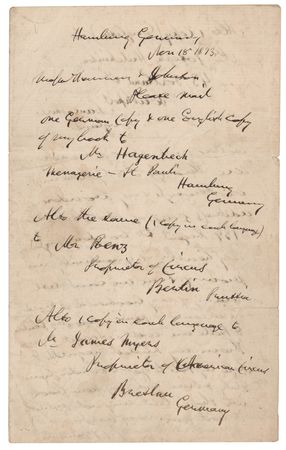 Hamburg Germany
Nov 18 1873
& Johnson
Please mail
one German Copy & one English Copy
of my book to
Mr Hagenbeck
Menagerie - St Pauli
Hamburg
Germany
Also the same (1 copy in each language)
to Mr Renz
Proprietor of Circus
Berlin
Prussia
Also 1 copy in each language to
Mr James Myers
Proprietor of American Circus
Breslau
Germany